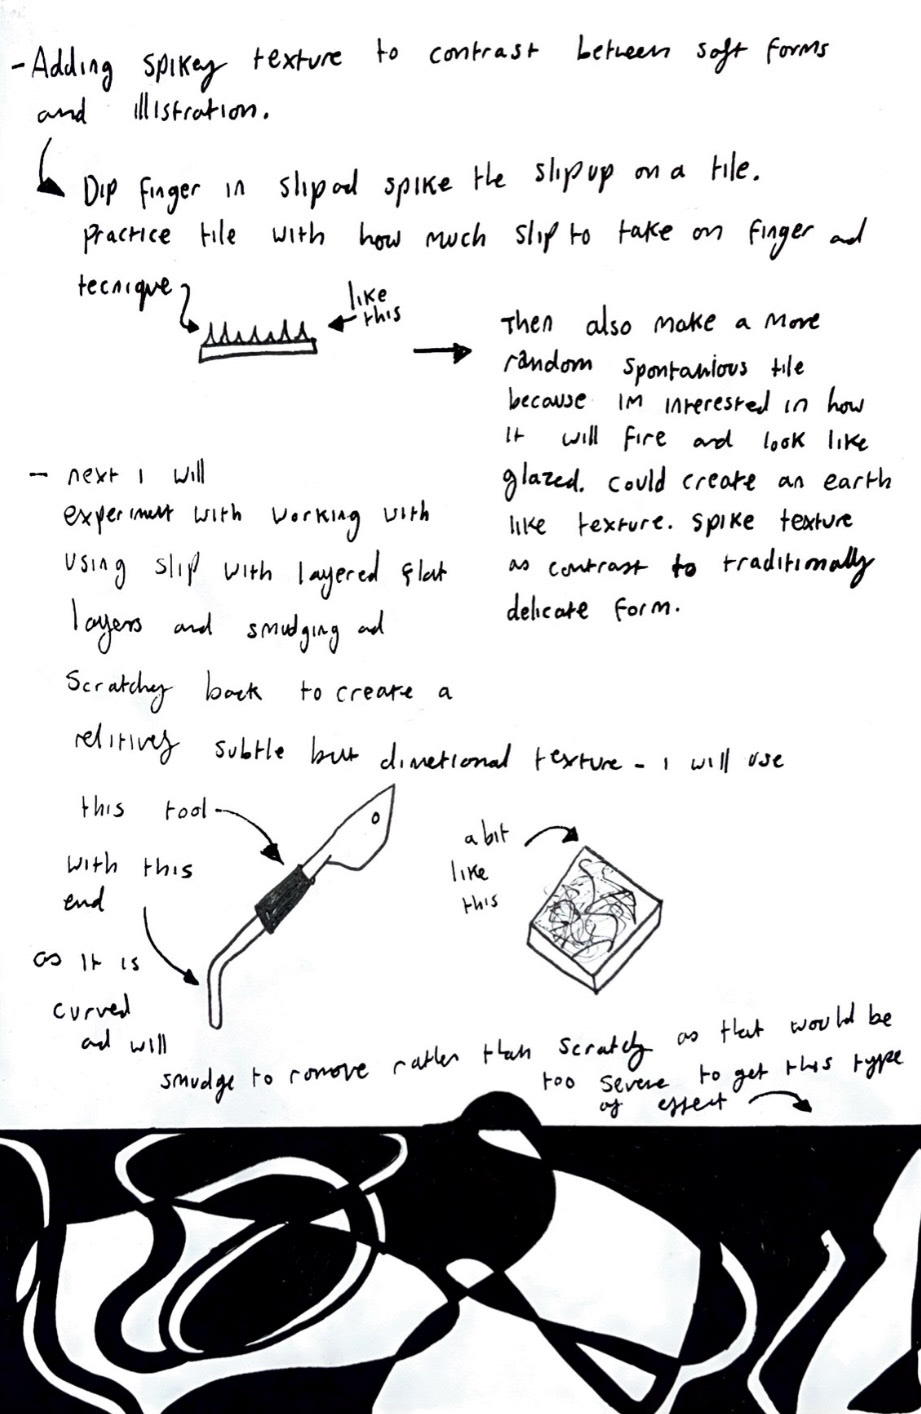 - Adding spikey texture to contrast between soft forms
and illistration.
Dip finger in slip ad spike the slip up on a tile.
practice tile with how much slip to take on finger ad
tecnique
like
this
Then also make a more
random spontanious tile
because im interested in how
it will fire and look like
glazed. could create an earth
like texture. spike texture
as contrast to traditionally
delicate form.
- next i will
experiment with working with
using slip with layered flat
layers and smudging ad
scratchy back to create a
relitivey subtle but dimetional texture - i will use
this tool
with this
end
as it is
curved
ad will
smudge to remove rather than scratchy as that would be
too severe to get this type
of effect
a bit
like
this